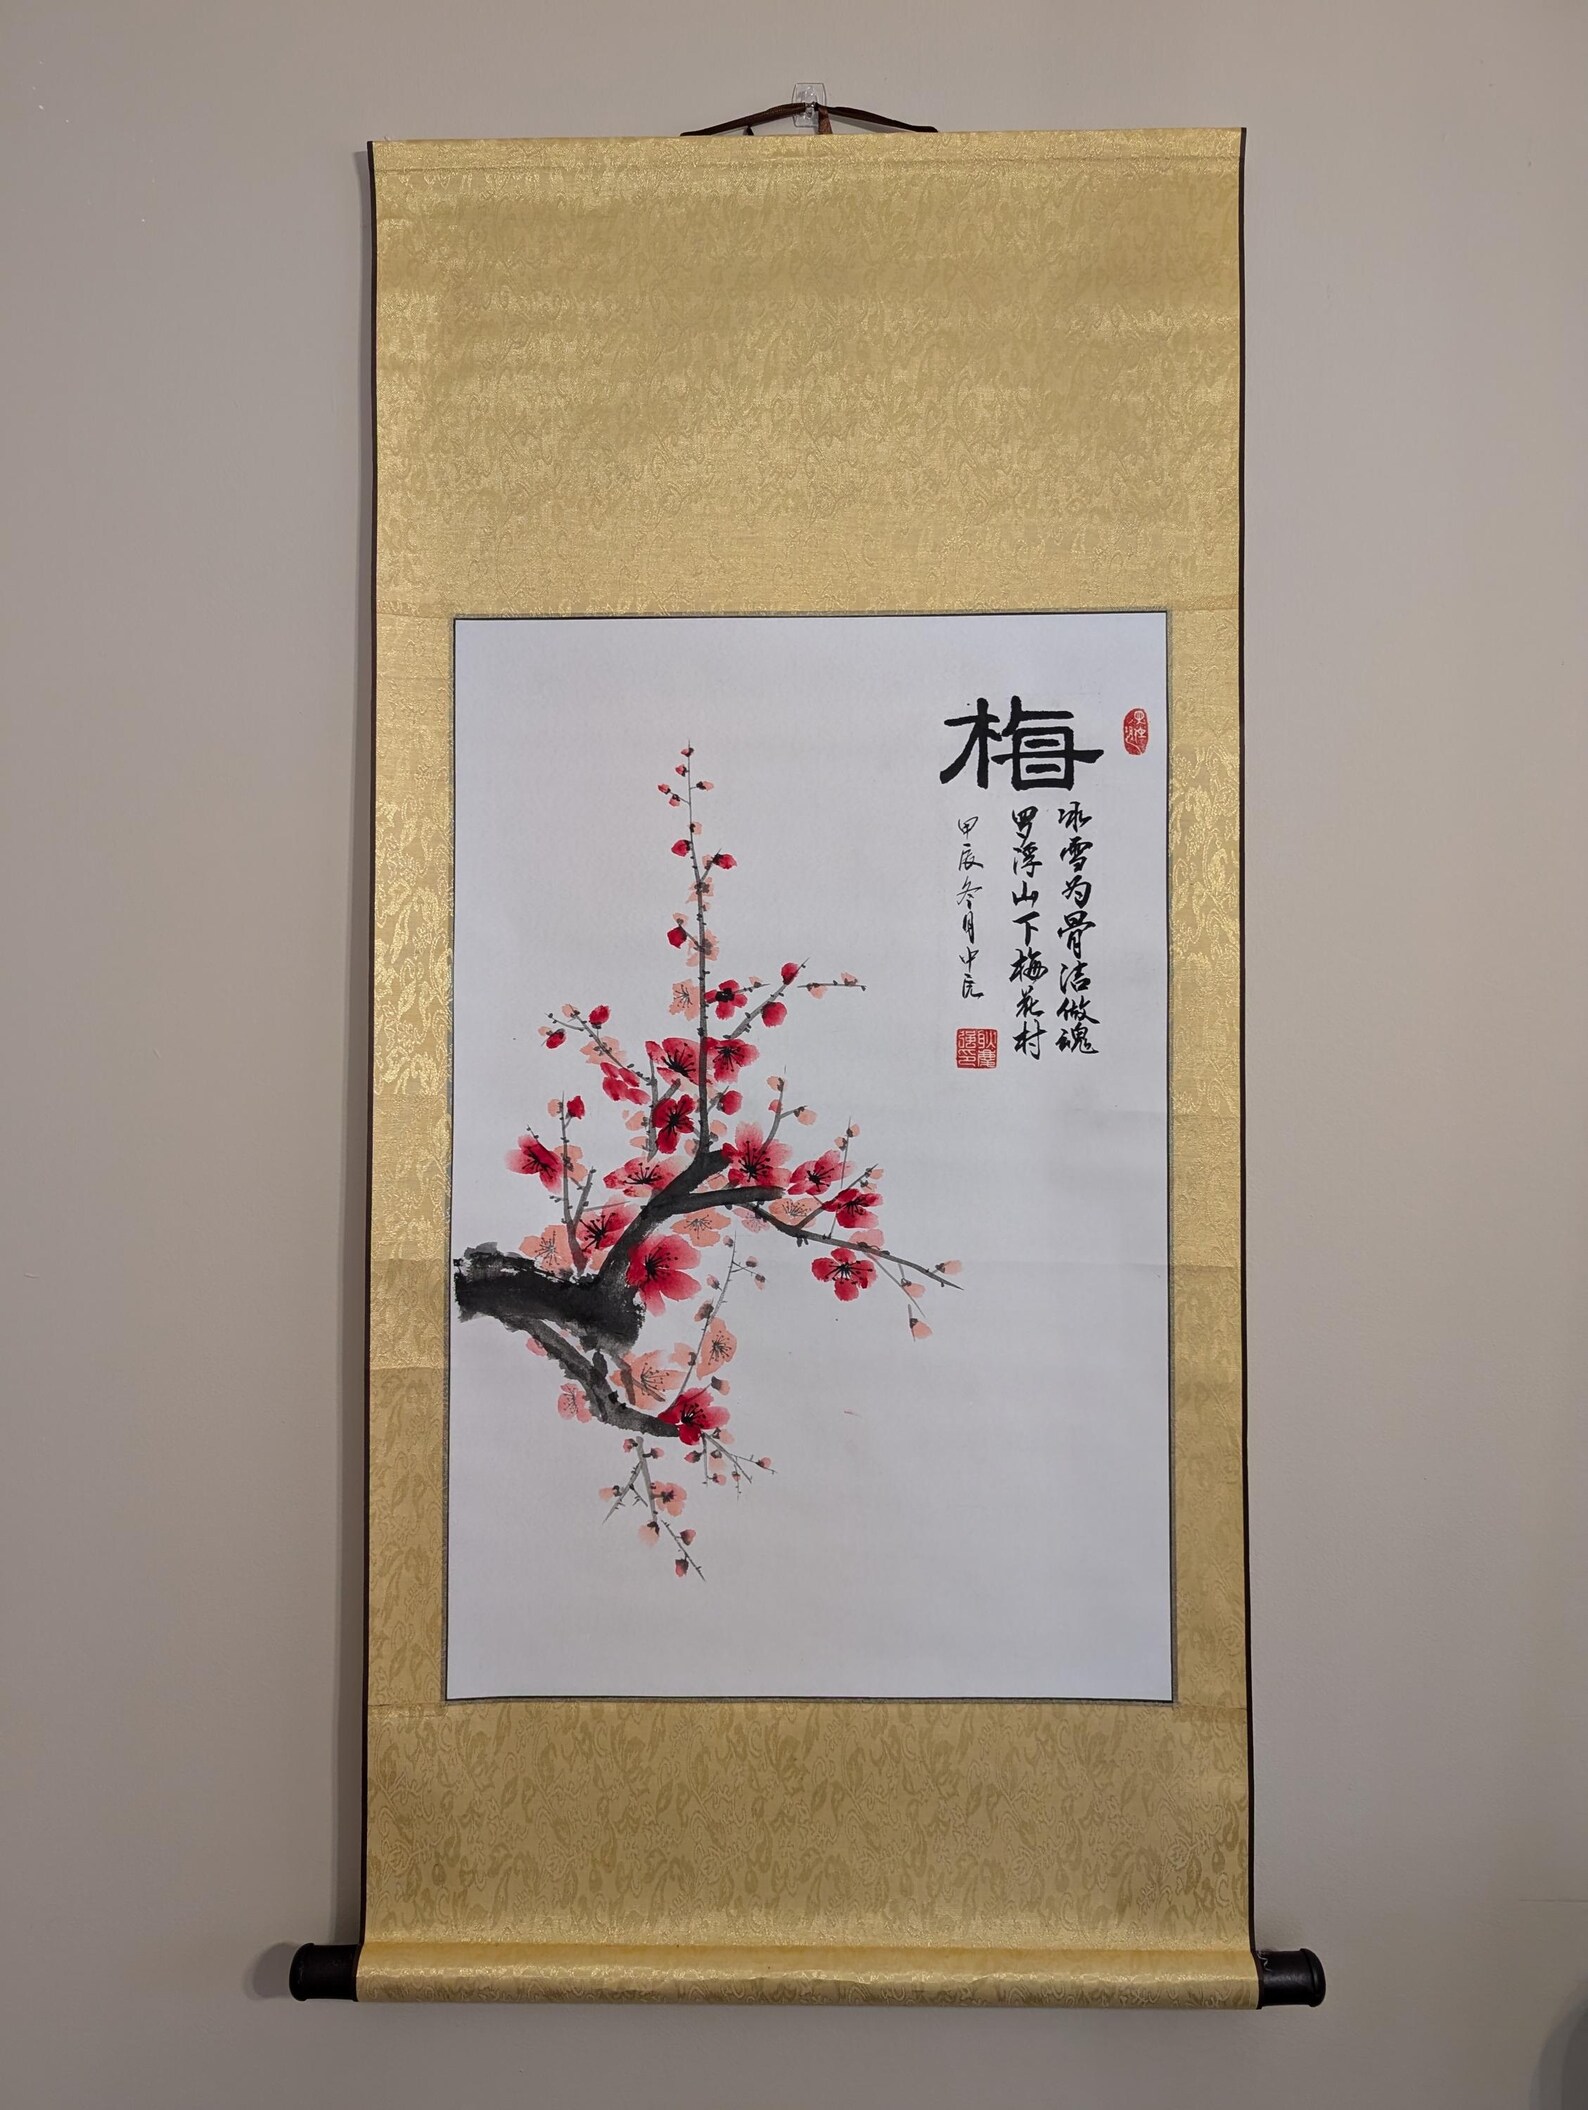 梅
冰雪为骨洁做魂
罗浮山下梅花村
甲辰冬月中民